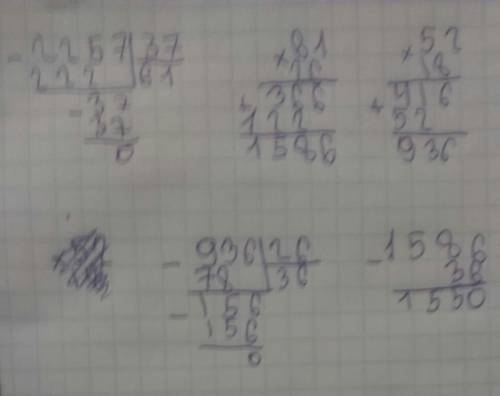 - 2257 | 37
222 | 61
- 37
37
0
× 81
26
366
+ 122
1586
× 52
18
916
+ 52
936
- 936 | 26
78 | 36
- 156
156
0
- 1586
36
1550